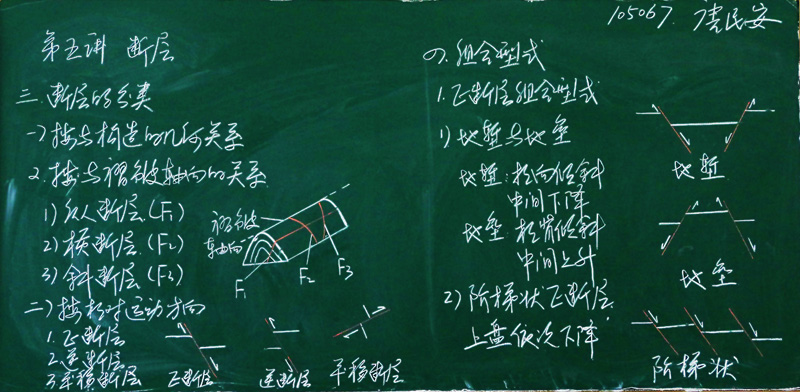 105067. 唐民安
第五讲 断层
三. 断层的分类
一) 按与构造的几何关系
2. 按与褶皱轴向的关系
1) 纵断层 (F1)
2) 横断层 (F2)
3) 斜断层 (F3)
褶皱
轴向
F1
F2
F3
二) 按相对运动方向
1. 正断层
2. 逆断层
3. 平移断层
正断层
逆断层
平移断层
四. 组合型式
1. 正断层组合型式
1) 地堑与地垒
地堑: 相向倾斜
中间下降
地垒: 相背倾斜
中间上升
2) 阶梯状正断层.
上盘依次下降
地堑
地垒
阶梯状